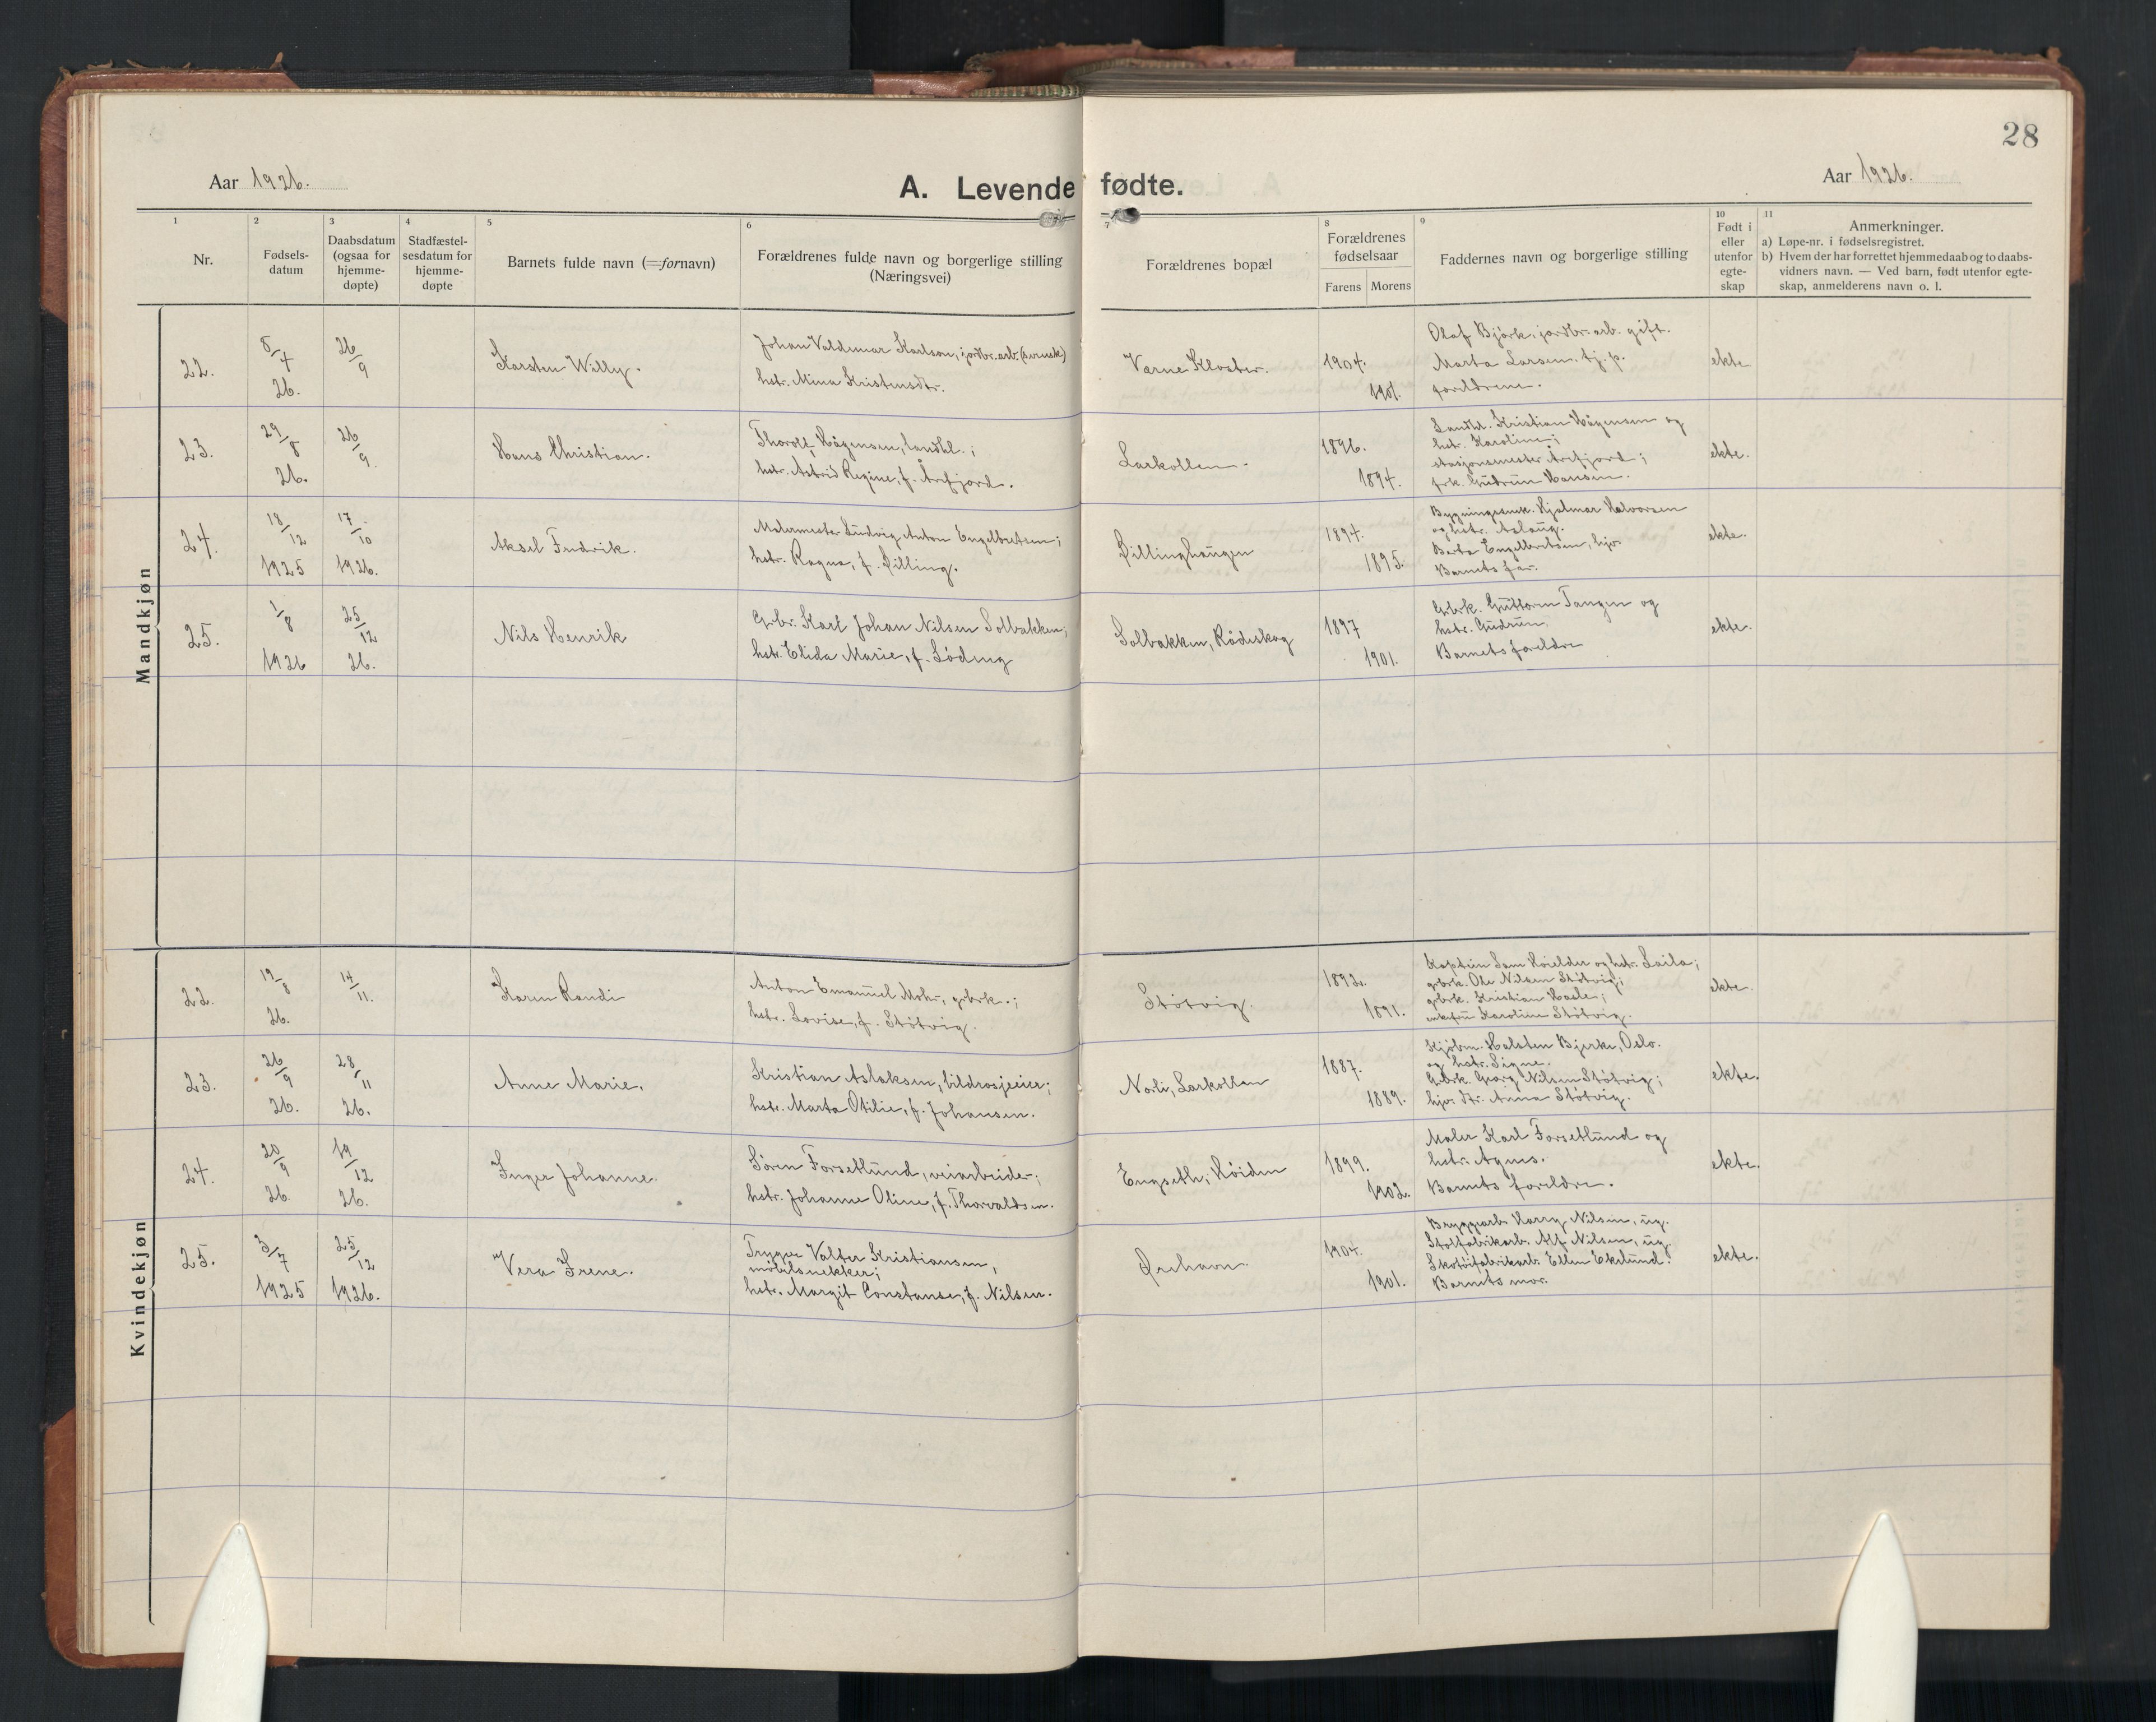 28
Aar 1926.
A. Levende fødte.
Aar 1926.
1
2
3
4
5
6
7
8
9
10
11
Nr.
Fødsels-
datum
Daabsdatum
(ogsaa for
hjemme-
døpte)
Stadfæstel-
sesdatum for
hjemme-
døpte
Barnets fulde navn (=fornavn)
Forældrenes fulde navn og borgerlige stilling
(Næringsvei)
Forældrenes bopæl
Forældrenes
fødselsaar
Farens
Morens
Faddernes navn og borgerlige stilling
Født i
eller
utenfor
egte-
skap
Anmerkninger.
a) Løpe-nr. i fødselsregistret.
b) Hvem der har forrettet hjemmedaab og to daabs-
vidners navn. — Ved barn, født utenfor egte-
skap, anmelderens navn o. l.
Mandkjøn
22.
8/4
26.
26/9
Karsten Willy.
Johan Valdemar Karlson, jordbr.arb. (svensk)
hstr. Mina Kristensdtr.
Værne Kloster.
1904.
1901.
Olaf Björk, jordbr.arb. gift.
Marta Larsen, tj. p.
foreldrene.
ekte
23.
29/8
26.
26/9.
Hans Christian.
Thorolf Hågensen, landhl.;
hstr. Astrid Regine, f. Årefjord.
Larkollen.
1896.
1894.
Landhl. Kristian Hågensen og
hstr. Karoline;
stasjonsmester Årefjord;
frk. Gudrun Hansen.
ekte.
24.
18/12
1925
17/10
1926.
Aksel Fredrik.
Malermester Ludvig Anton Engelbretsen;
hstr. Ragna, f. Dilling.
Dillinghaugen
1894.
1895.
Bygningssnek. Hjalmar Halvorsen
og hstr. Aslaug.
Berta Engelbretsen, hjv.
Barnets far.
ekte.
25.
1/8
1926
25/12
26.
Nils Henrik
Grbr. Karl Johan Nilsen Solbakken;
hstr. Elida Marie, f. Löding
Solbakken, Rödiskog
1897
1901.
Grbrk. Guttorm Tangen og
hstr. Gudrun.
Barnets foreldre
ekte.
Kvindekjøn
22.
19/8
26.
14/11.
Karen Randi
Anton Emanuel Mohr, grbrk.;
hstr. Lovise, f. Stötvig.
Stötvig.
1892.
1891.
Kaptein Sam Höielder og hstr. Laila;
grbrk. Ole Nilsen Stötvig;
grbrk. Kristian Hasle;
enkefru Karoline Stötvig.
ekte.
23.
26/9
26.
28/11
26.
Anne Marie.
Kristian Aslaksen, bildrosjeeier;
hstr. Marta Otilie, f. Johansen.
Norli, Larkollen
1887.
1889.
Kjöbm. Halsten Bjerke, Oslo.
og hstr. Signe.
Grbrk. Georg Nilsen Stötvig;
hjv. dtr. Anna Stötvig.
ekte.
24.
20/9
26.
19/12
26.
Inger Johanne.
Sören Forsetlund, veiarbeider;
hstr. Johanne Oline, f. Thorvaldsen.
Engseth, Höiden
1899.
1902.
Maler Karl Forsetlund og
hstr. Agnes.
Barnets foreldre.
ekte.
25.
3/7
1925
25/12
1926.
Vera Irene.
Trygve Valter Kristiansen,
möbelsnekker;
hstr. Margit Constanse, f. Nilsen.
Ørehavn.
1904.
1901.
Bryggearb. Harry Nilsen, ug.
Stolfabrikarb. Alf Nilsen, ug.
Skotöifabrikarb. Ellen Eklund.
Barnets mor.
ekte.